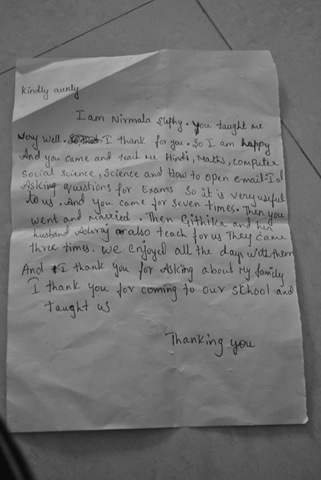 Kindly aunty
I am Nirmala Suphy. You taught me
very well. I thank for you. So I am happy
And you came and teach me Hindi, Maths, computer
Social science, Science and How to open e-mail I.d
Asking questions for Exams So it is very useful
to us. And you came for seven times. Then you
went and married. Then Rithika and her
husband also teach for us They came
three times. We enjoyed all the days with them
And I thank you for Asking about My family
I thank you for coming to our school and
taught us
Thanking you